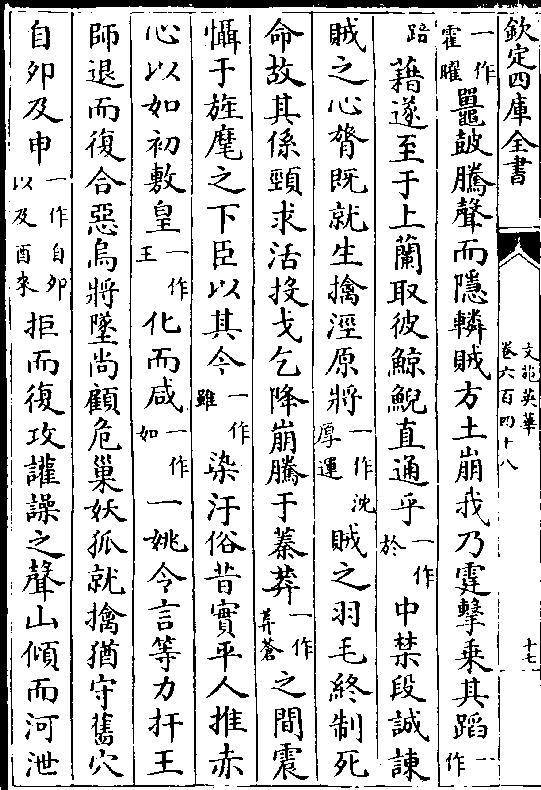 欽定四庫全書
文苑英華
卷六百四十八
十七
一作霍曜鼉鼓騰聲而隱轔賊方土崩我乃霆擊乘其蹈一作
踣藉遂至于上蘭取彼鯨鯢直通乎一作於中禁段誠諫
賊之心膂既就生擒涇原將一作沈厚運賊之羽毛終制死
命故其係頸求活投戈乞降崩騰于蓁莽一作莽蒼之間震
懾于旌麾之下臣以其今一作雖染汙俗昔實平人推赤
心以如初敷皇一作王化而咸一作如一姚令言等力扞王
師退而復合惡烏將墜尚顧危巢妖狐就擒猶守舊穴
自夘及申一作自夘以及酉來拒而復攻讙譟之聲山傾而河泄